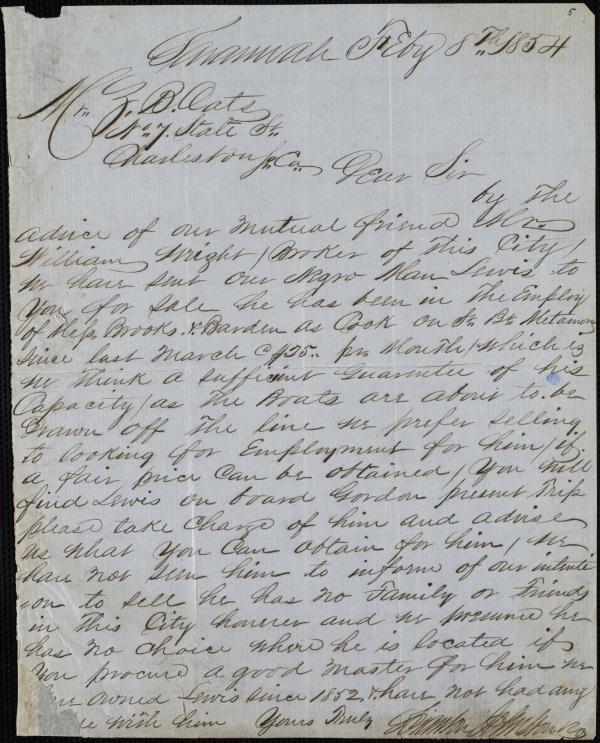 5
Savannah Feby 8th 1854
Mr. Z. B. Oats
No 7. State St.
Charleston So Ca
Dear Sir
by the
advice of our mutual friend Mr
William Wright / Broker of this City /
we have sent our Negro Man Lewis to
you for sale he has been in the Employ
of Mess Brooks & Barden as Cook on St. Bt. Metamora
since last March @ $25.. pr Month / which is
we think a sufficient Guarantee of his
Capacity / as the Boats are about to be
drawn off the line we prefer selling
to looking for Employment for him / if
a fair price can be obtained / You will
find Lewis on board Gordon present Trip
please take charge of him and advise
as what you can obtain for him / we
have not seen him to inform of our intenti
ion to sell he has no Family or Friends
in this City however and we presume he
has no choice where he is located if
you procure a good master for him we
owned Lewis since 1852 & have not had any
with him Yours Truly